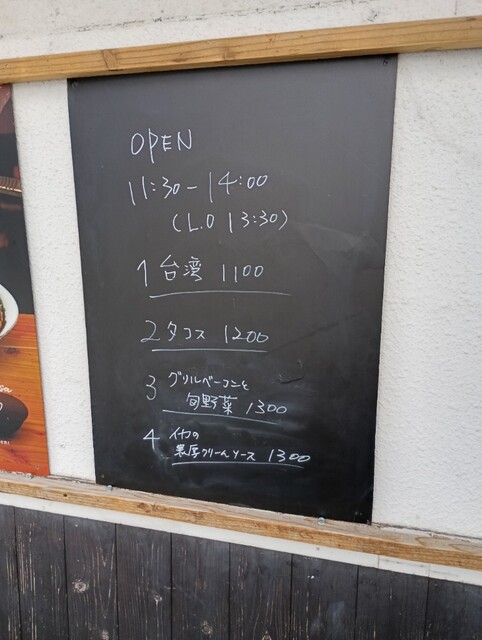 OPEN
11:30-14:00
(L.O 13:30)
1 台湾 1100
2 タコス 1200
3 グリルベーコンと
旬野菜 1300
4 イカの
濃厚クリームソース 1300